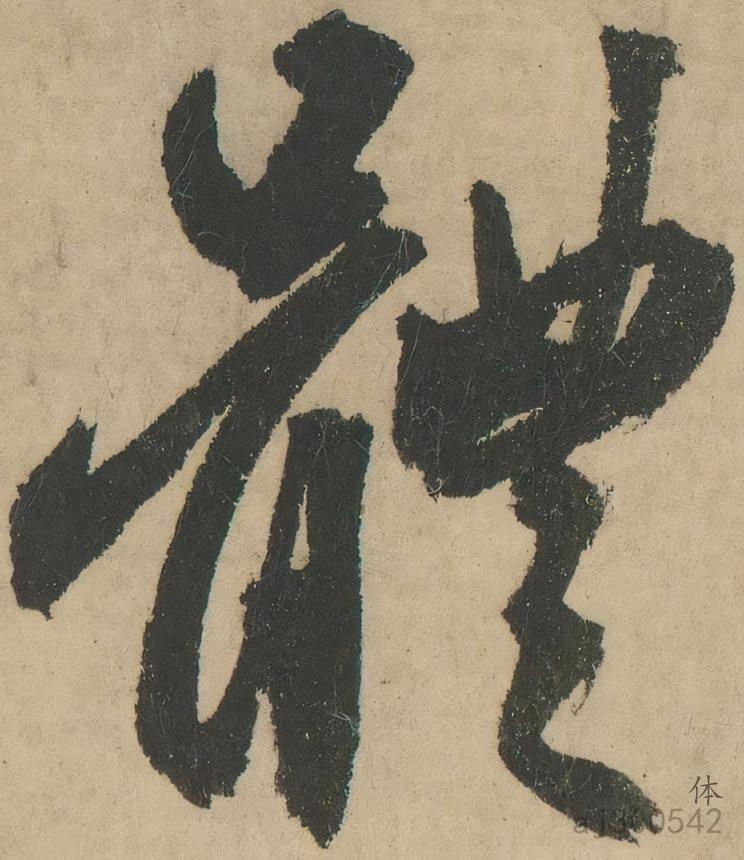 體
体
a1360542